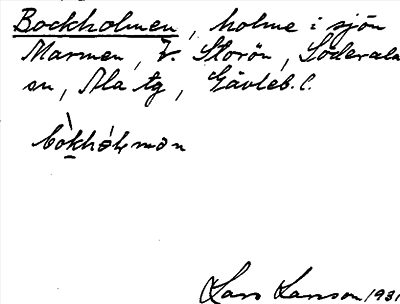 Bockholmen, holme i sjön
Marmen, V. Storön, Söderala
sn, Ala tg, Gävleb. l.
bòkhòlmən
Lars Larsson 1931